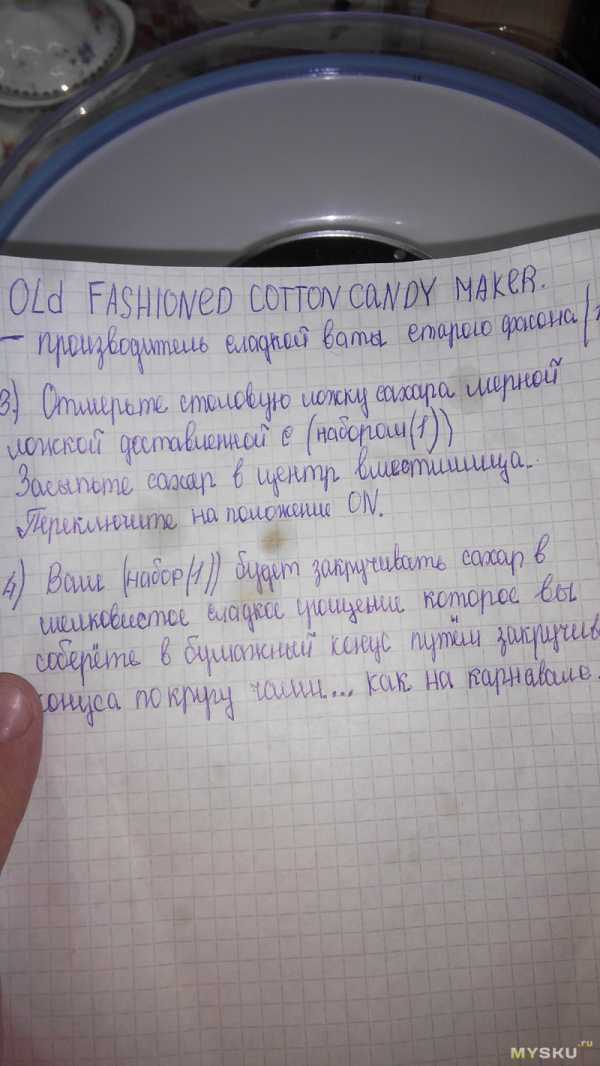 OLd FASHIONED COTTON CANDY MAKER.
– производитель сладкой ваты старого фасона (1
3) Отмерьте столовую ложку сахара мерной
ложкой доставленной с (набором(1))
Засыпьте сахар в центр вместилища.
Переключите на положение ON.
4) Ваш (набор(1)) будет закручивать сахар в
шелковистое сладкое угощение которое вы
соберёте в бумажный конус путём закручив
конуса по кругу чаши... как на карнавале.
MYSKU.ru